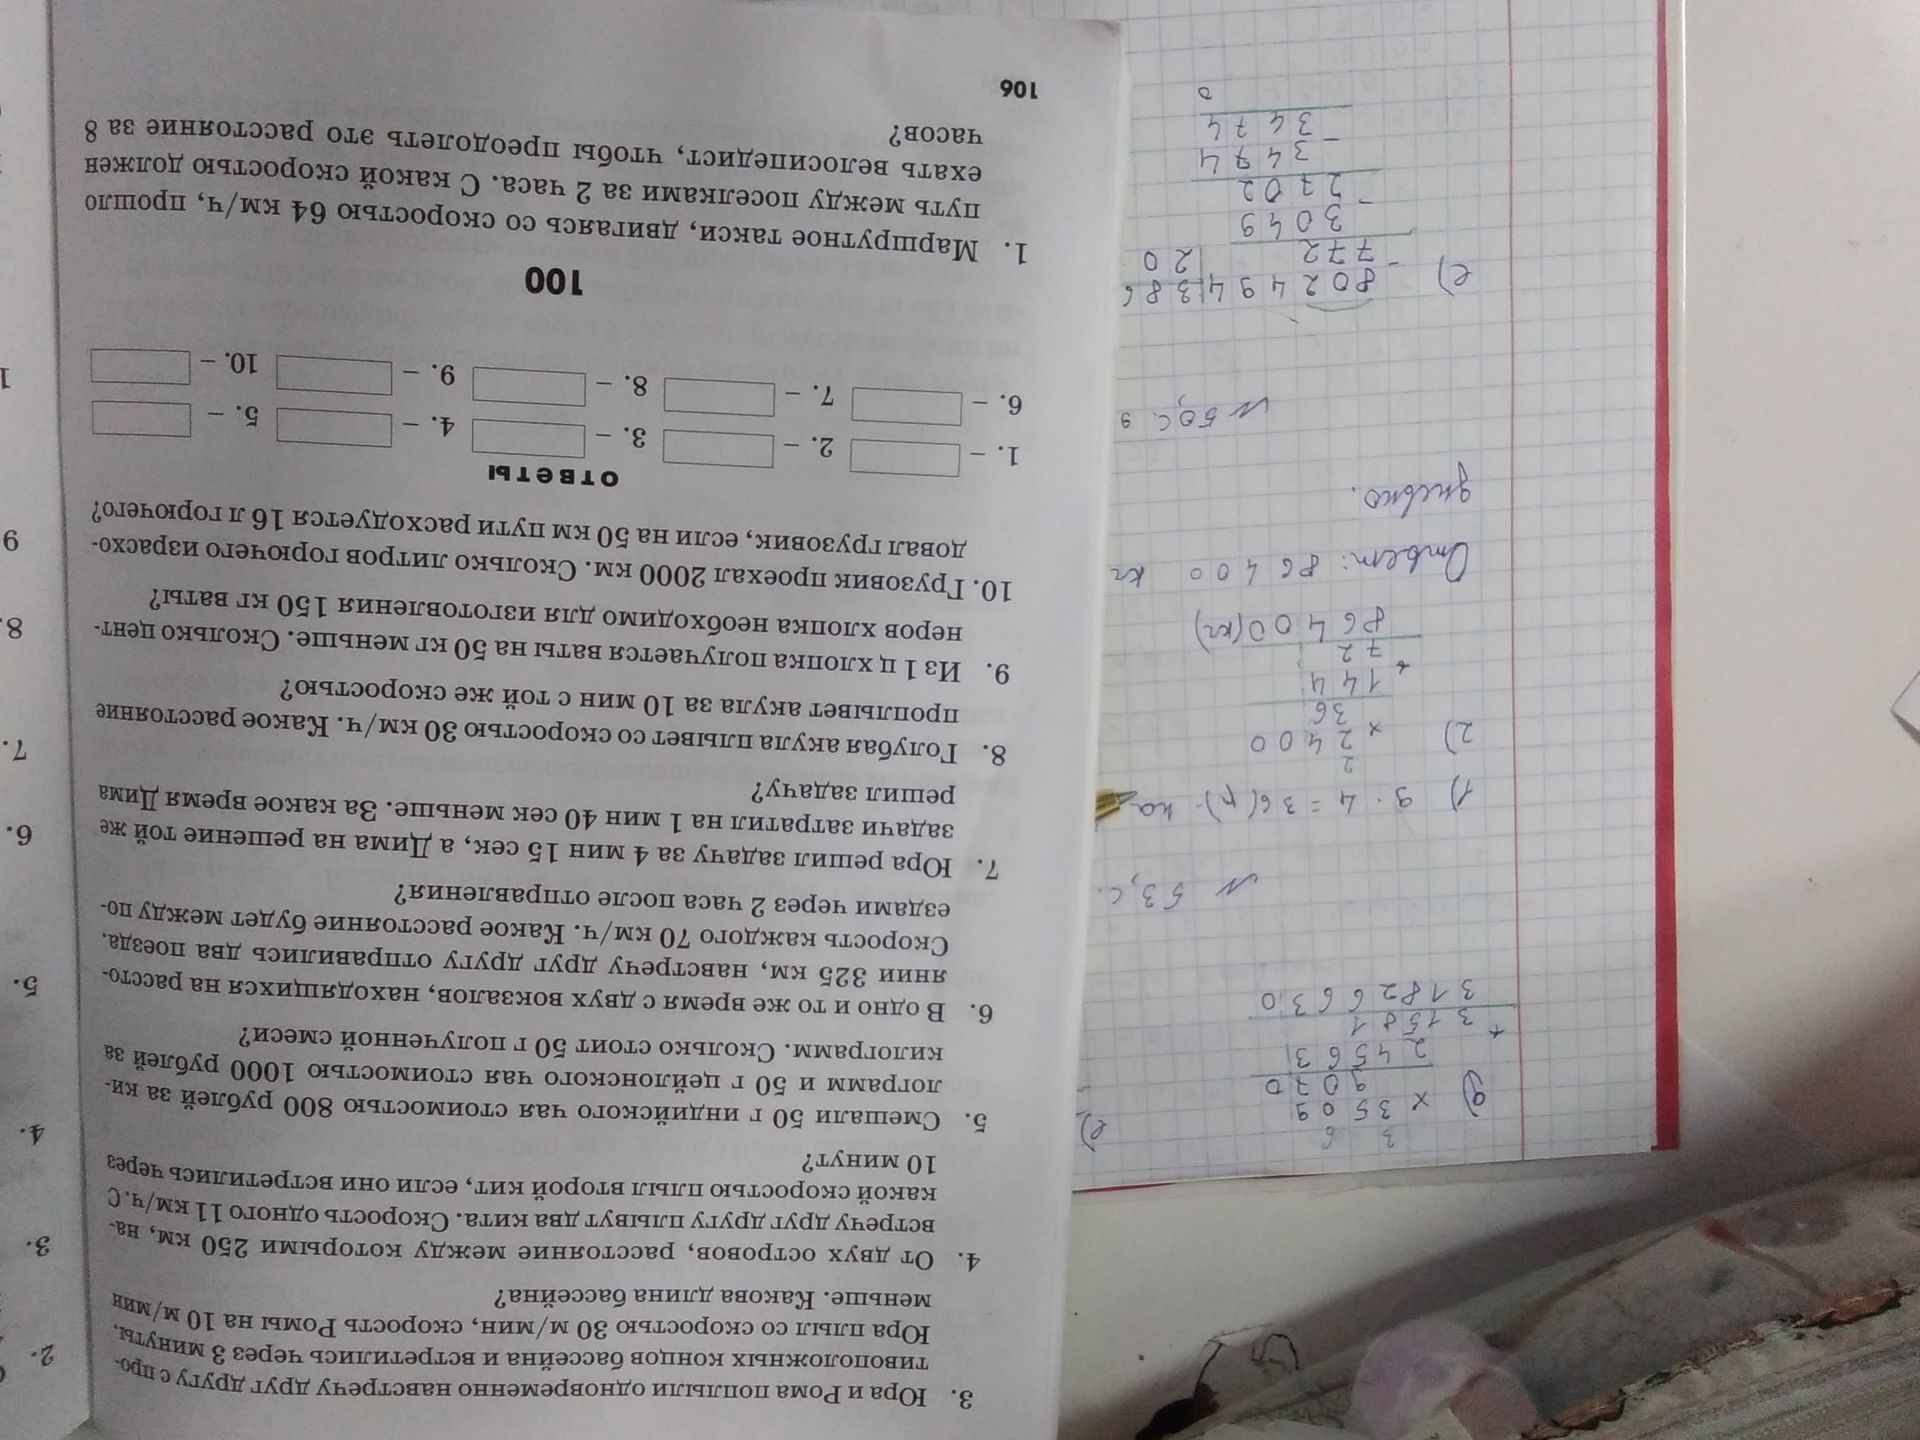 3. Юра и Рома поплыли одновременно навстречу друг другу с про-
тивоположных концов бассейна и встретились через 3 минуты.
Юра плыл со скоростью 30 м/мин, скорость Ромы на 10 м/мин
меньше. Какова длина бассейна?
4. От двух островов, расстояние между которыми 250 км, на-
встречу друг другу плывут два кита. Скорость одного 11 км/ч. С
какой скоростью плыл второй кит, если они встретились через
10 минут?
5. Смешали 50 г индийского чая стоимостью 800 рублей за ки-
лограмм и 50 г цейлонского чая стоимостью 1000 рублей за
килограмм. Сколько стоит 50 г полученной смеси?
6. В одно и то же время с двух вокзалов, находящихся на рассто-
янии 325 км, навстречу друг другу отправились два поезда.
Скорость каждого 70 км/ч. Какое расстояние будет между по-
ездами через 2 часа после отправления?
7. Юра решил задачу за 4 мин 15 сек, а Дима на решение той же
задачи затратил на 1 мин 40 сек меньше. За какое время Дима
решил задачу?
8. Голубая акула плывет со скоростью 30 км/ч. Какое расстояние
проплывет акула за 10 мин с той же скоростью?
9. Из 1 ц хлопка получается ваты на 50 кг меньше. Сколько цент-
неров хлопка необходимо для изготовления 150 кг ваты?
10. Грузовик проехал 2000 км. Сколько литров горючего израсхо-
довал грузовик, если на 50 км пути расходуется 16 л горючего?
ОТВЕТЫ
1. – 2. – 3. – 4. – 5. –
6. – 7. – 8. – 9. – 10. –
100
1. Маршрутное такси, двигаясь со скоростью 64 км/ч, прошло
путь между поселками за 2 часа. С какой скоростью должен
ехать велосипедист, чтобы преодолеть это расстояние за 8
часов?
106
2.
3.
4.
5.
6.
7.
8.
9
3 6
× 3509
9070
24563
+ 31581
31826630
е)
N 53, с.
1) 9 · 4 = 36(р)
2
2) × 2400
36
144
+ 72
86400(кг)
Ответ: 86400 кг
N 50, с. 9
е) 802494 386
- 772 20
3049
- 2702
3474
- 3474
0